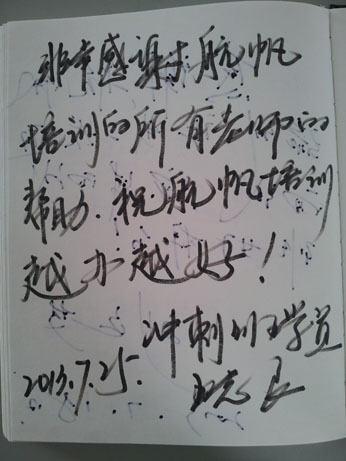 非常感谢扬航帆
培训的所有老师的
帮助.祝航帆培训
越办越好！
冲刺班学员
2013.7.25.